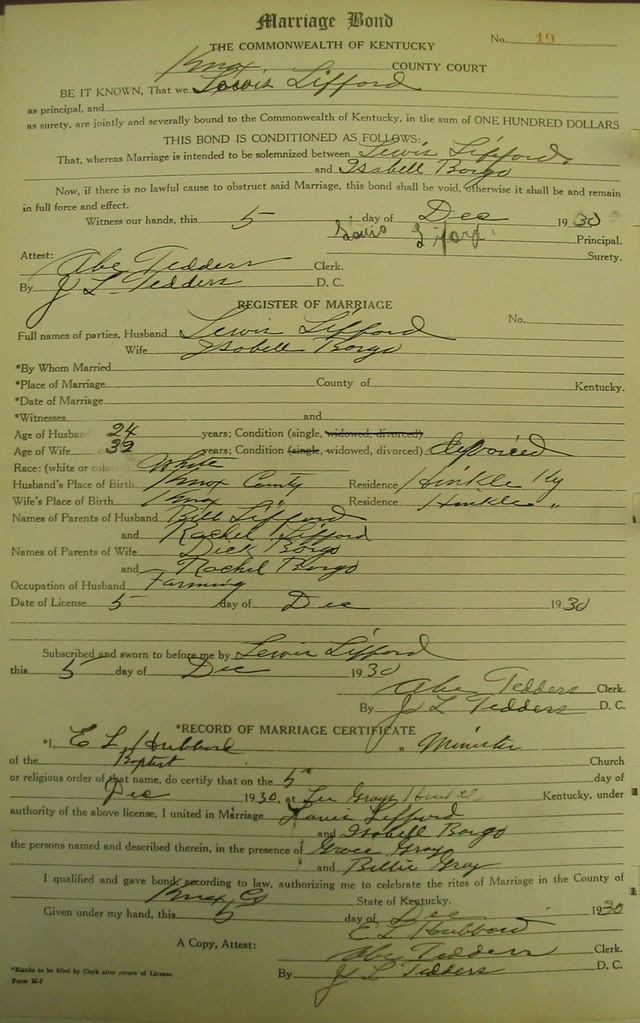 Marriage Bond
No. 19
THE COMMONWEALTH OF KENTUCKY
Knox COUNTY COURT
BE IT KNOWN, That we Lewis Lifford
as principal, and
as surety, are jointly and severally bound to the Commonwealth of Kentucky, in the sum of ONE HUNDRED DOLLARS
THIS BOND IS CONDITIONED AS FOLLOWS:
That, whereas Marriage is intended to be solemnized between Lewis Lifford
and Isabell Borgo
Now, if there is no lawful cause to obstruct said Marriage, this bond shall be void, otherwise it shall be and remain
in full force and effect.
Witness our hands, this 5 day of Dec 1930
Principal.
Surety.
Attest:
Abe Tedders Clerk.
By J L Tedders D. C.
REGISTER OF MARRIAGE
No.
Full names of parties, Husband Lewis Lifford
Wife Isabell Borgo
*By Whom Married
*Place of Marriage County of Kentucky.
*Date of Marriage
*Witnesses and
Age of Husband 24 years; Condition (single, widowed, divorced)
Age of Wife 32 years; Condition (single, widowed, divorced) divorced
Race: (white or colored White
Husband's Place of Birth Knox County Residence Hinkle Ky
Wife's Place of Birth Knox " Residence Hinkle "
Names of Parents of Husband Bill Lifford
and Rachel Lifford
Names of Parents of Wife Dick Borgo
and Rachel Borgo
Occupation of Husband Farming
Date of License 5 day of Dec 1930
Subscribed and sworn to before me by Lewis Lifford
this 5 day of Dec 1930
Abe Tedders Clerk.
By J L Tedders D. C.
*RECORD OF MARRIAGE CERTIFICATE
*I, E L Hubbard a Minister
of the Baptist Church
or religious order of that name, do certify that on the 5 day of
Dec 1930, at Gray Hinkle Kentucky, under
authority of the above license, I united in Marriage Lewis Lifford
and Isabell Borgo
the persons named and described therein, in the presence of Grace Gray
and Billie Gray
I qualified and gave bond, according to law, authorizing me to celebrate the rites of Marriage in the County of
Knox Co State of Kentucky.
Given under my hand, this 5 day of Dec 1930
E L Hubbard
A Copy, Attest: Abe Tedders Clerk.
By J L Tedders D. C.
*Blanks to be filled by Clerk after return of License.
Form M-7